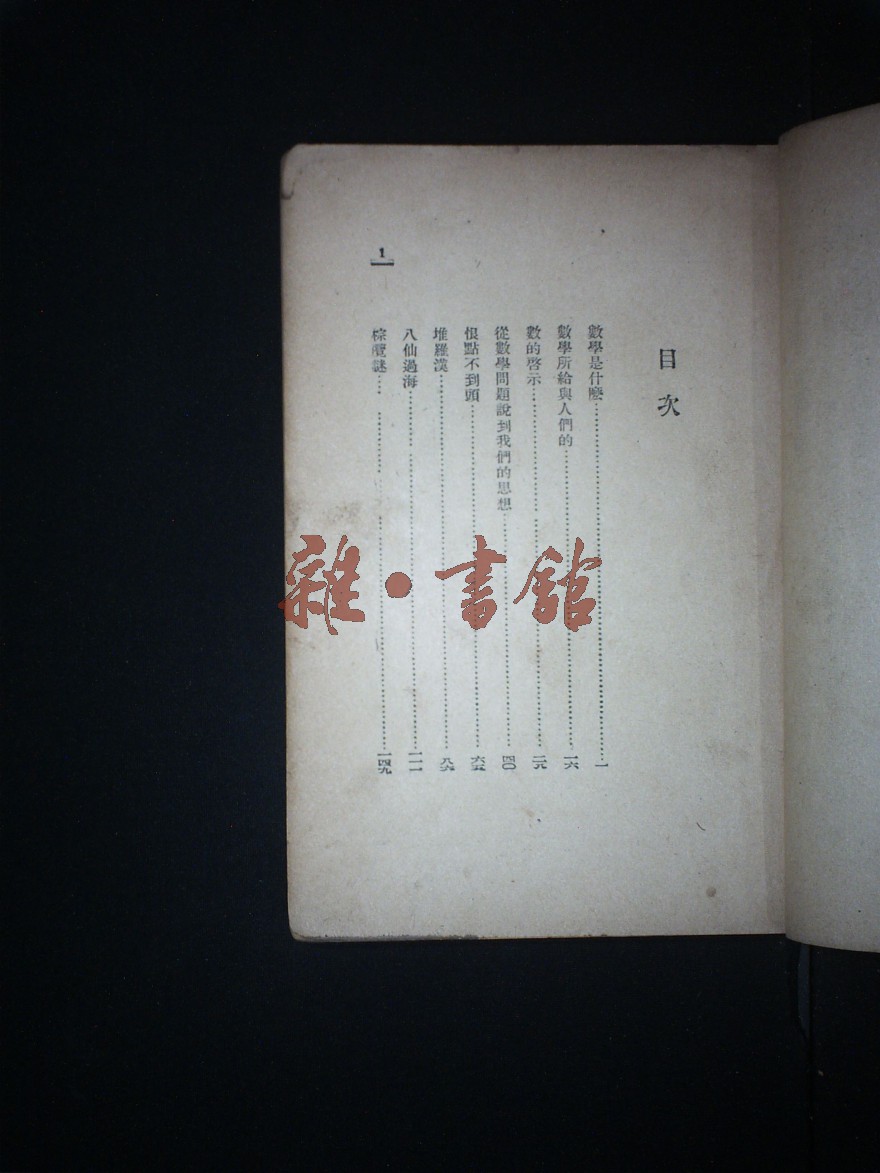 目次
數學是什麼……一
數學所給與人們的……一六
數的啓示……二九
從數學問題說到我們的思想……四〇
恨點不到頭……六五
堆羅漢……八六
八仙過海……一一一
棕欖謎……一四九
1
雜·書館